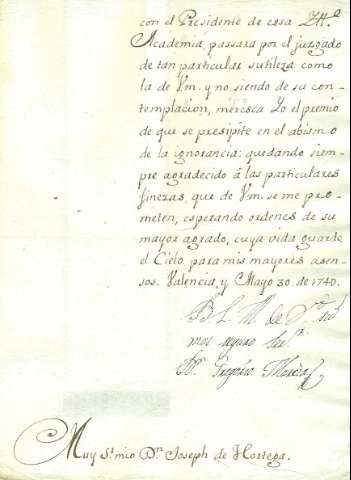 con el Presidente de essa Ill.e
Academia, passara por el juzgado
de tan particular sutileza como
la de Vm. y no siendo de su con-
templacion, meresca Yo el premio
de que se presipite en el abismo
de la ignorancia: quedando siem-
pre agradecido â las particulares
finezas, que de Vm. se me pro-
meten; esperando ordenes de su
mayor agrado, cuya vida guarde
el Cielo para mis mayores asen-
sos. Valencia, y Mayo 30. de 1740.
B L M de
mas seguro
Dn. Gregorio
Muy Sr. mio Dn. Joseph de Hortega.